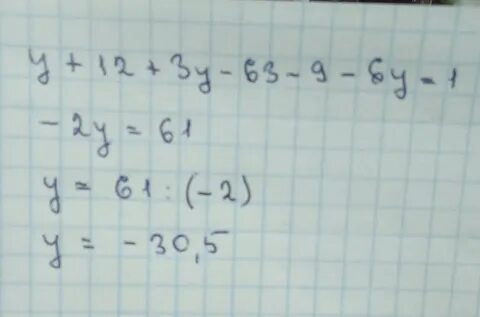 y + 12 + 3y - 63 - 9 - 6y = 1
- 2y = 61
y = 61 : (-2)
y = - 30,5